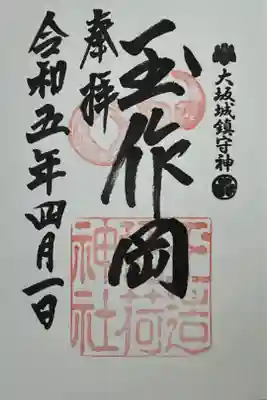 大坂城鎮守神
玉作岡
奉拝
令和五年四月一日
玉造
稲荷
神社